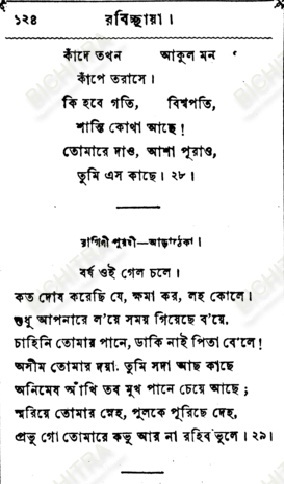 ১২৪ রবিচ্ছায়া।
কাঁদে তখন আকুল মন
কাঁপে তরাসে।
কি হবে গতি, বিশ্বপতি,
শান্তি কোথা আছে!
তোমারে দাও, আশা পূরাও,
তুমি এস কাছে। ২৮॥
রাগিণী পুরবী—আড়াঠেকা।
বর্ষ ওই গেল চলে।
কত দোষ করেছি যে, ক্ষমা কর, লহ কোলে।
শুধু আপনারে ল'য়ে সময় গিয়েছে ব'য়ে.
চাহিনি তোমার পানে, ডাকি নাই পিতা বে'লে!
অসীম তোমার দয়া. তুমি সদা আছ কাছে
অনিমেষ আঁখি তব মুখ পানে চেয়ে আছে;
স্মরিয়ে তোমার স্নেহ, পুলকে পূরিছে দেহ,
প্রভু গো তোমারে কভু আর না রহিব ভুলে॥ ২৯॥